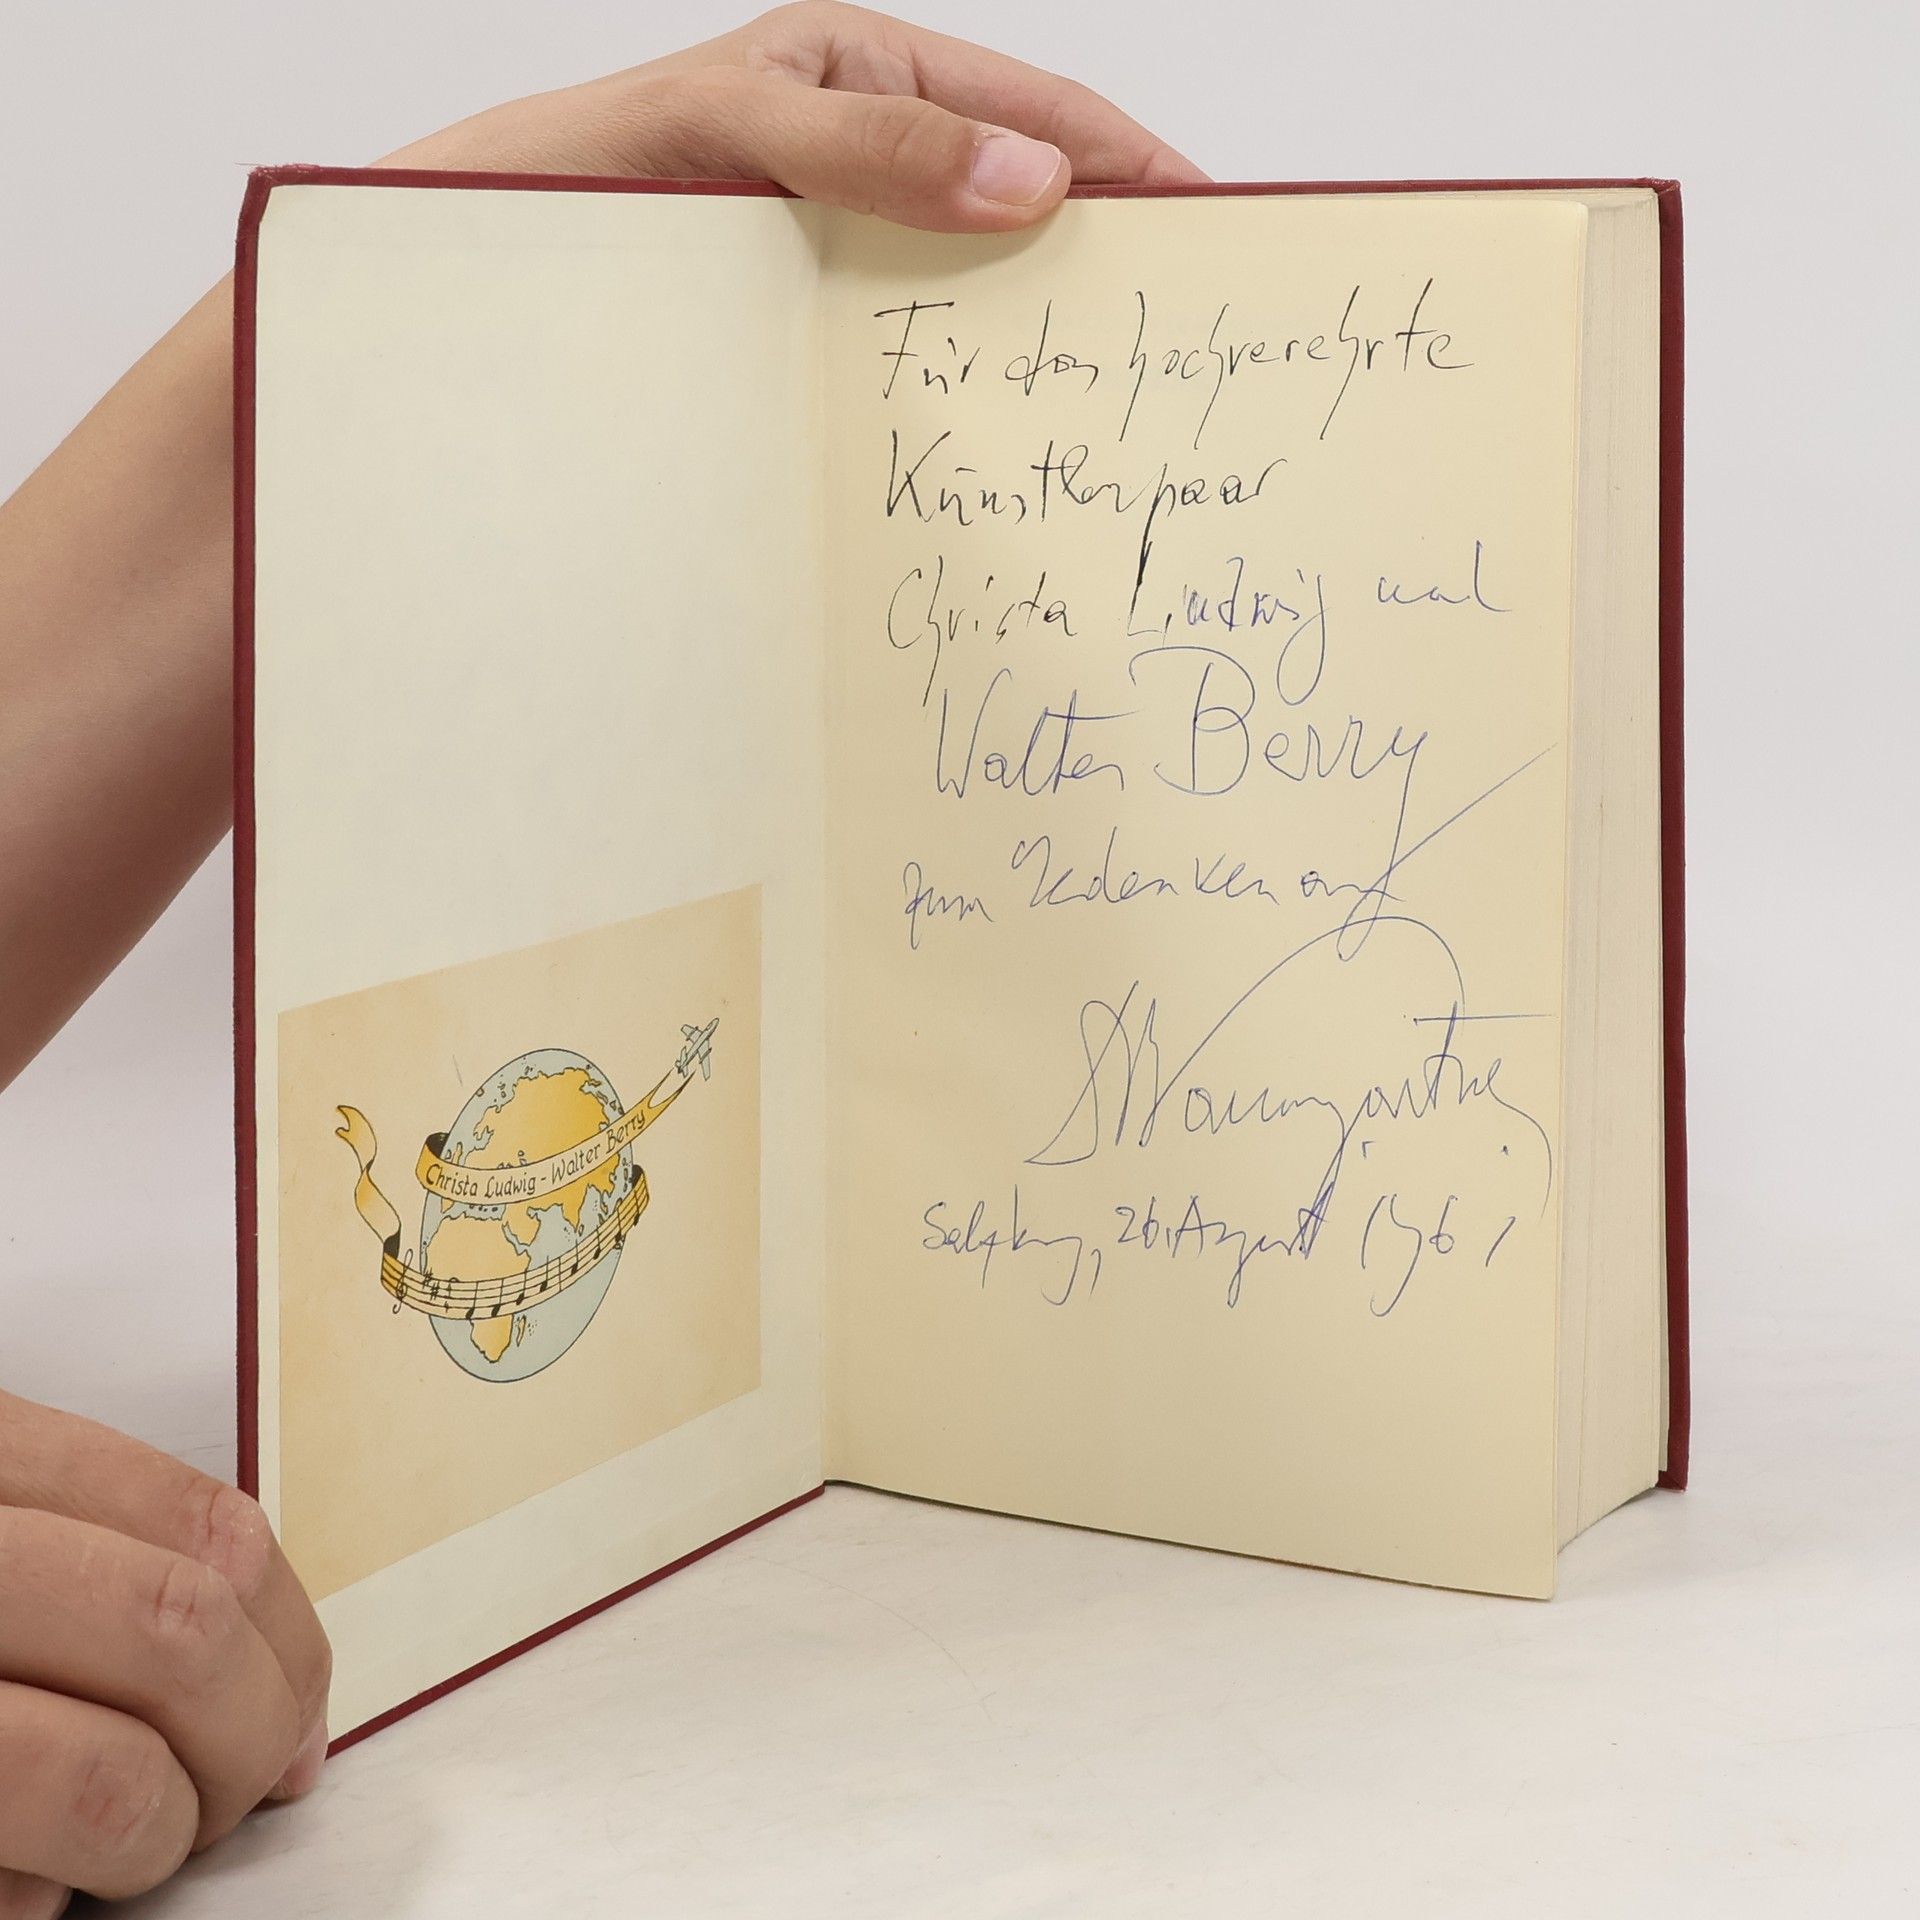 Christa Ludwig - Walter Berry
Für das hochverehrte
Künstlerpaar
Christa Ludwig und
Walter Berry
zum Gedenken an
Baumgartner
Salzburg, 26. August 196